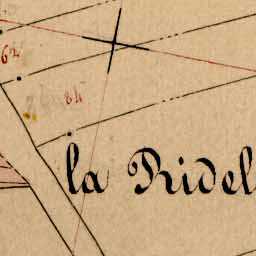 62
84
la Ridel